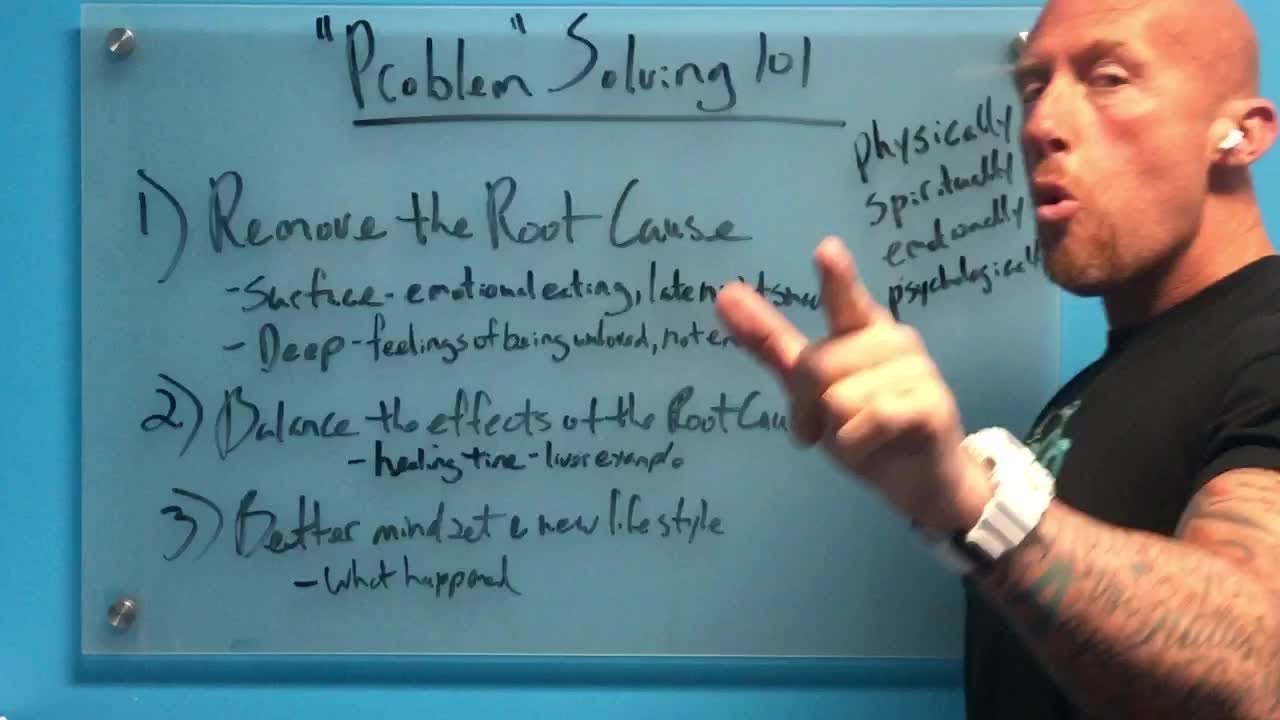 "Problem" Solving 101
physically
spiritually
emotionally
psychologically
1) Remove the Root Cause
- Surface - emotional eating, late
- Deep - feelings of being unloved, not
2) Balance the effects of the Root
- healing time - liver example
3) Better mindset & new lifestyle
- what happened